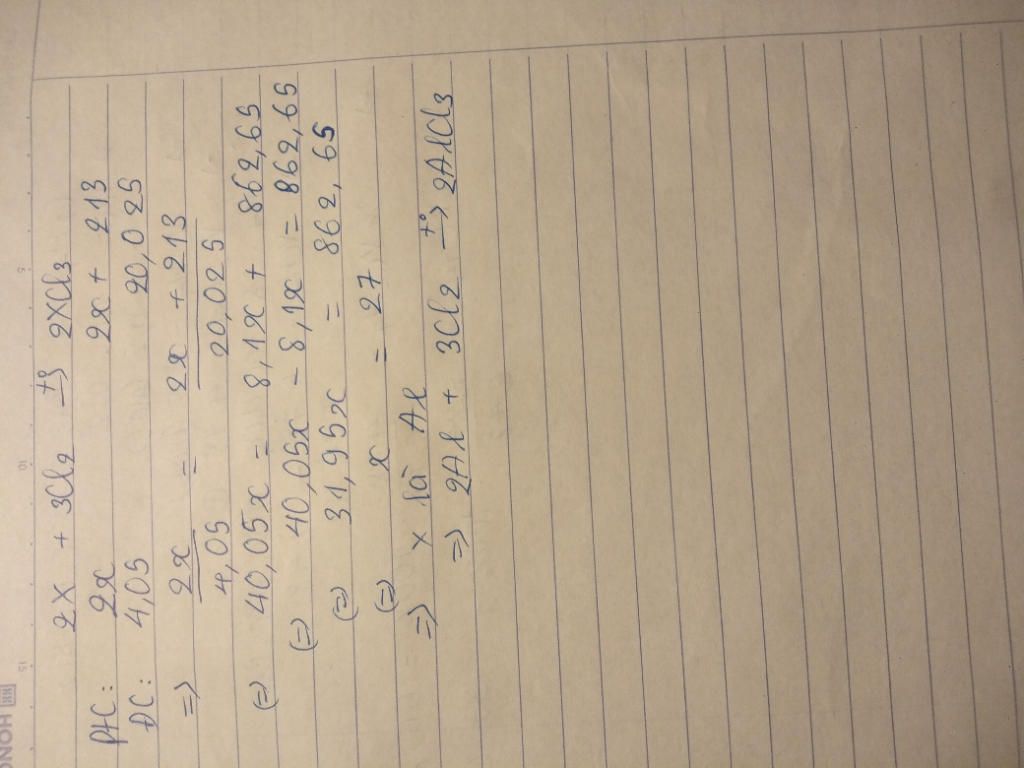 2X + 3Cl2 t°→ 2XCl3
PHC: 2x 2x + 213
ĐC: 4,05 20,025
=> 2x/4,05 = 2x + 213/20,025
(=) 40,05x = 8,1x + 862,65
(=) 40,05x - 8,1x = 862,65
(=) 31,95x = 862,65
(=) x = 27
=> x là Al
=> 2Al + 3Cl2 t°→ 2AlCl3
5
10
15